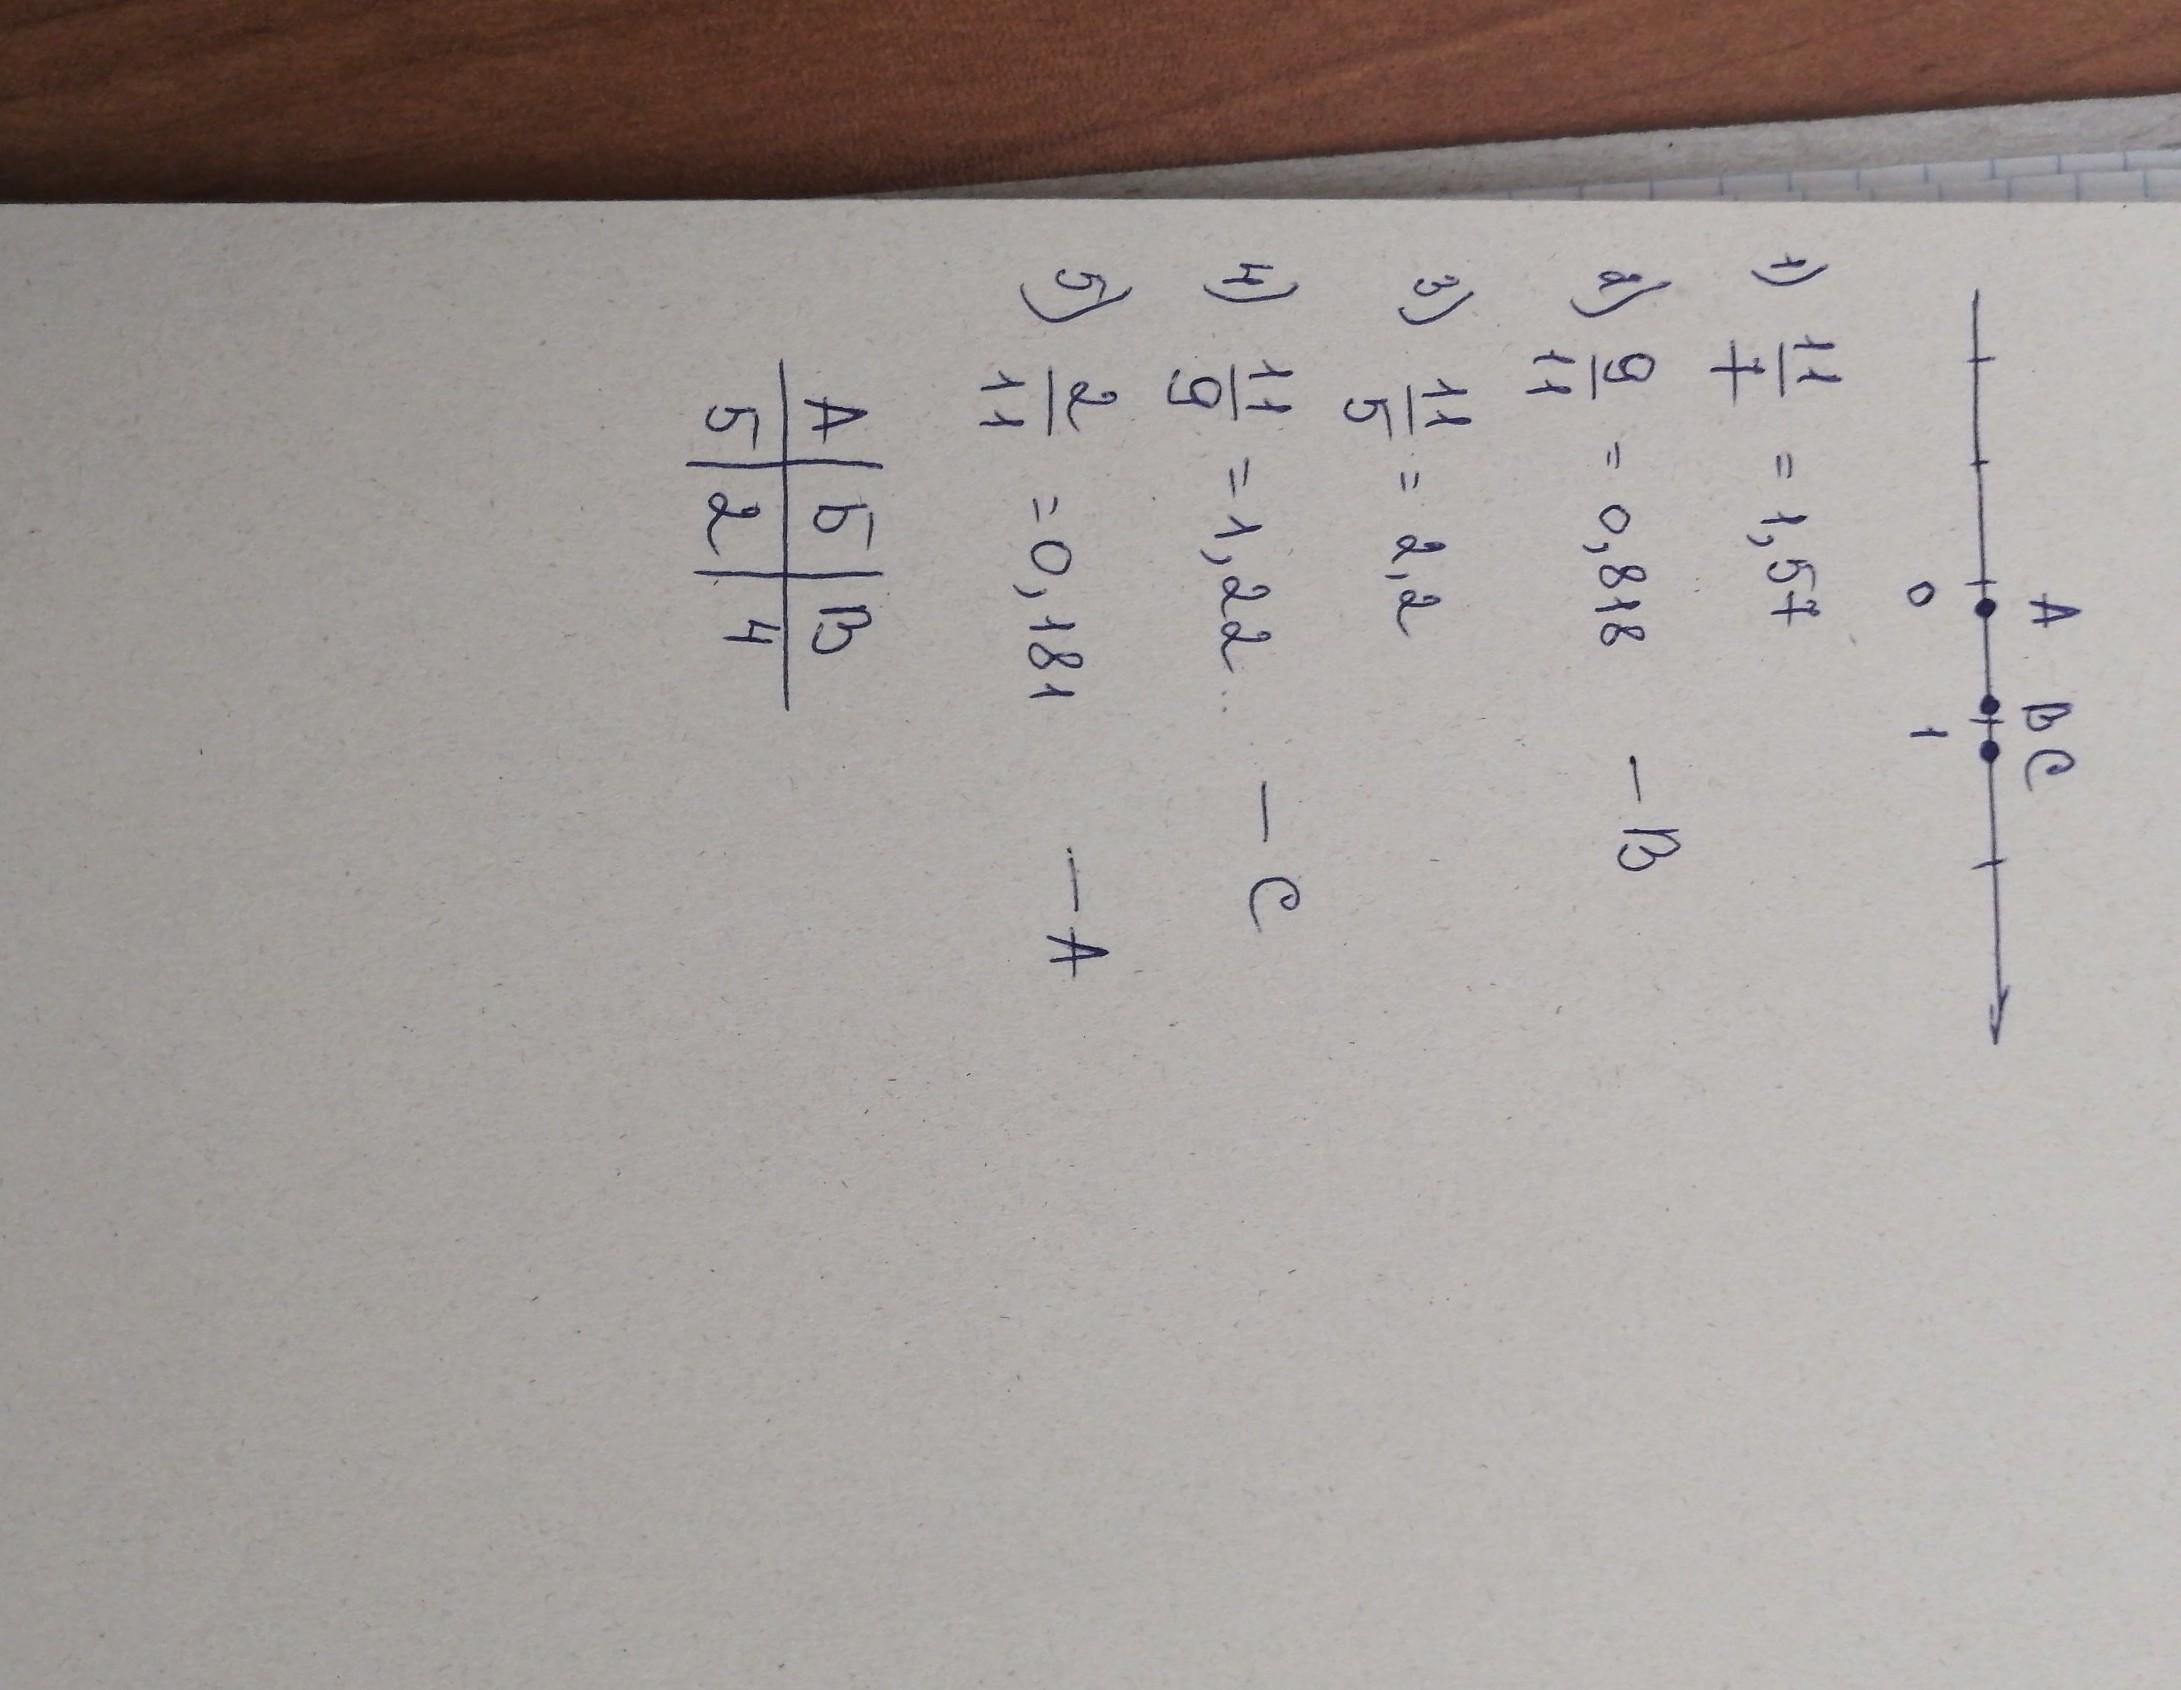 A B C
0 1
1) 11/7 = 1,57
2) 9/11 = 0,818 - B
3) 11/5 = 2,2
4) 11/9 = 1,22.. - C
5) 2/11 = 0,181 - A
А | Б | В
5 | 2 | 4